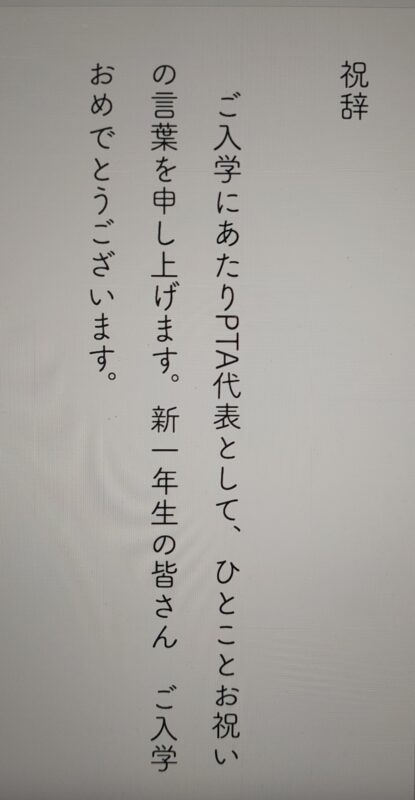 祝辞
ご入学にあたりPTA代表として、ひとことお祝い
の言葉を申し上げます。新一年生の皆さん　ご入学
おめでとうございます。